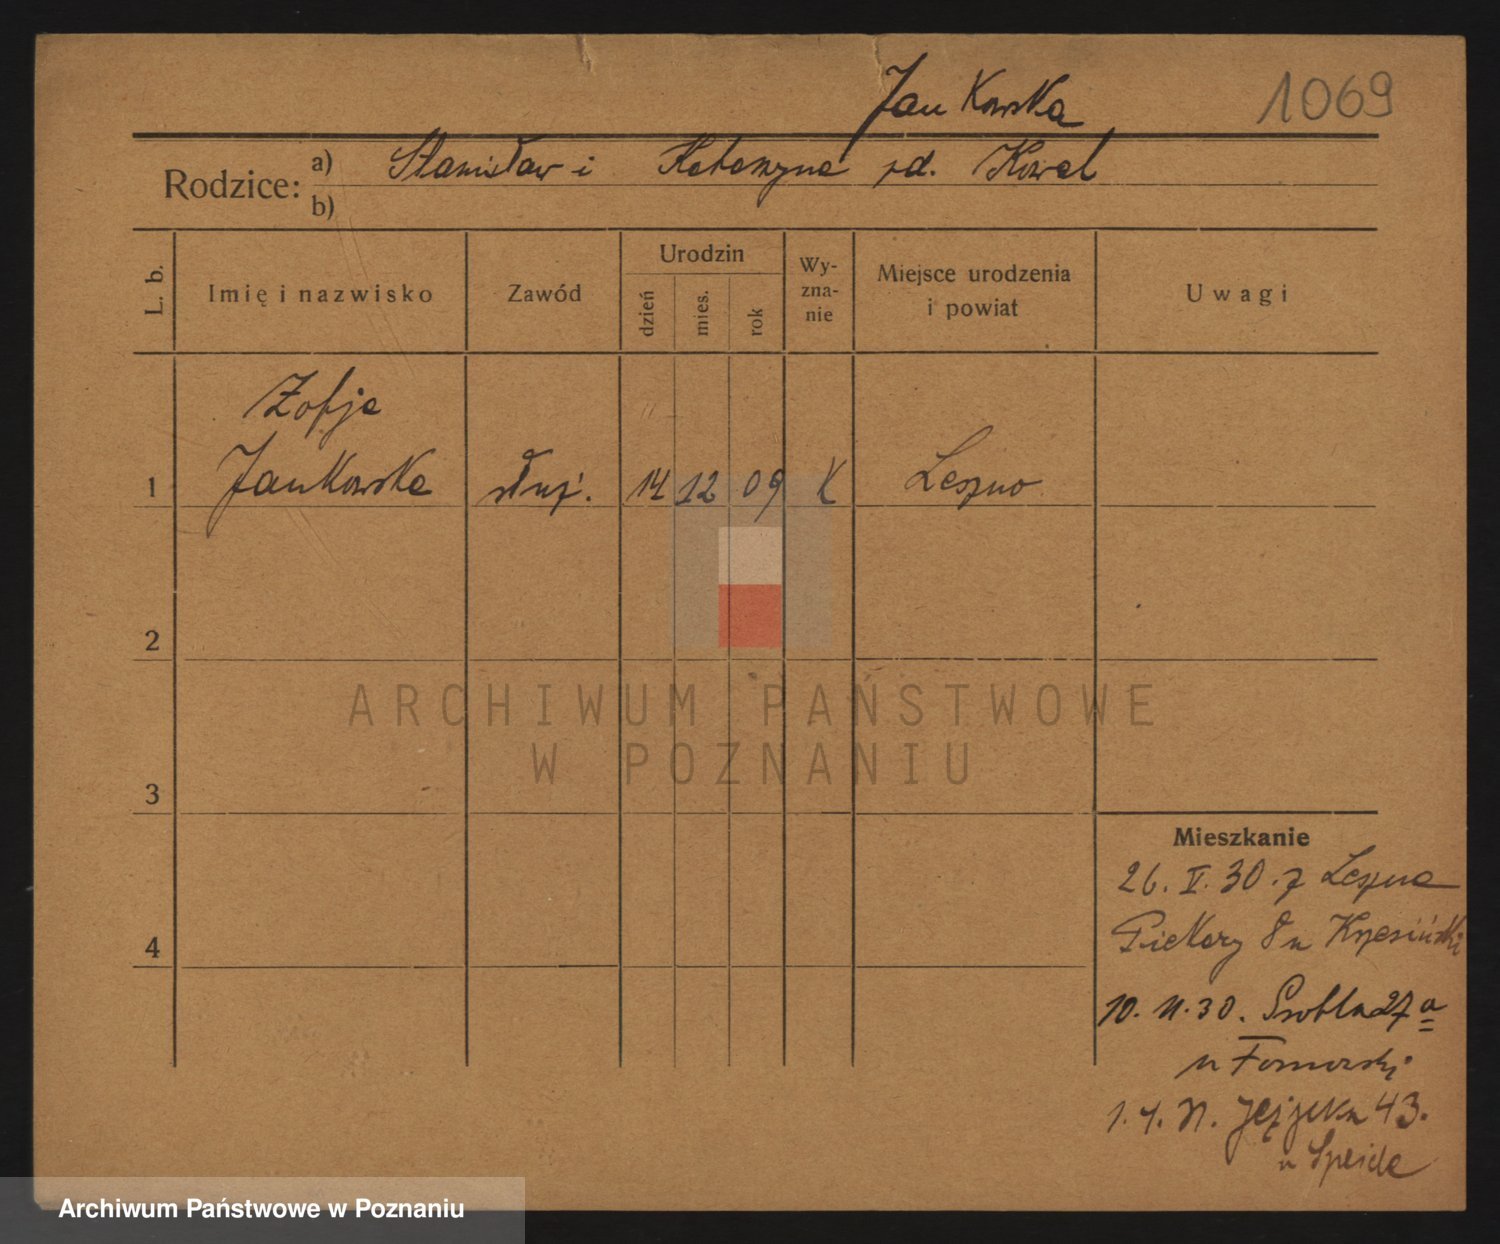 1069
Jankowska
Rodzice:
a) Stanisław i Katarzyna zd. Kowal
b)
L. b.
Imię i nazwisko
Zawód
Urodzin
dzień
mies.
rok
Wy-
zna-
nie
Miejsce urodzenia
i powiat
Uwagi
Zofja
1 Jankowska służ. 14 12 09 K Leszno
2
ARCHIWUM PAŃSTWOWE
W POZNANIU
3
Mieszkanie
26. V. 30. z Leszna
Piekary 8 u Krzesiński
4
10. 11. 30. 27 a
u
1. 4. 31. 43.
u
Archiwum Państwowe w Poznaniu